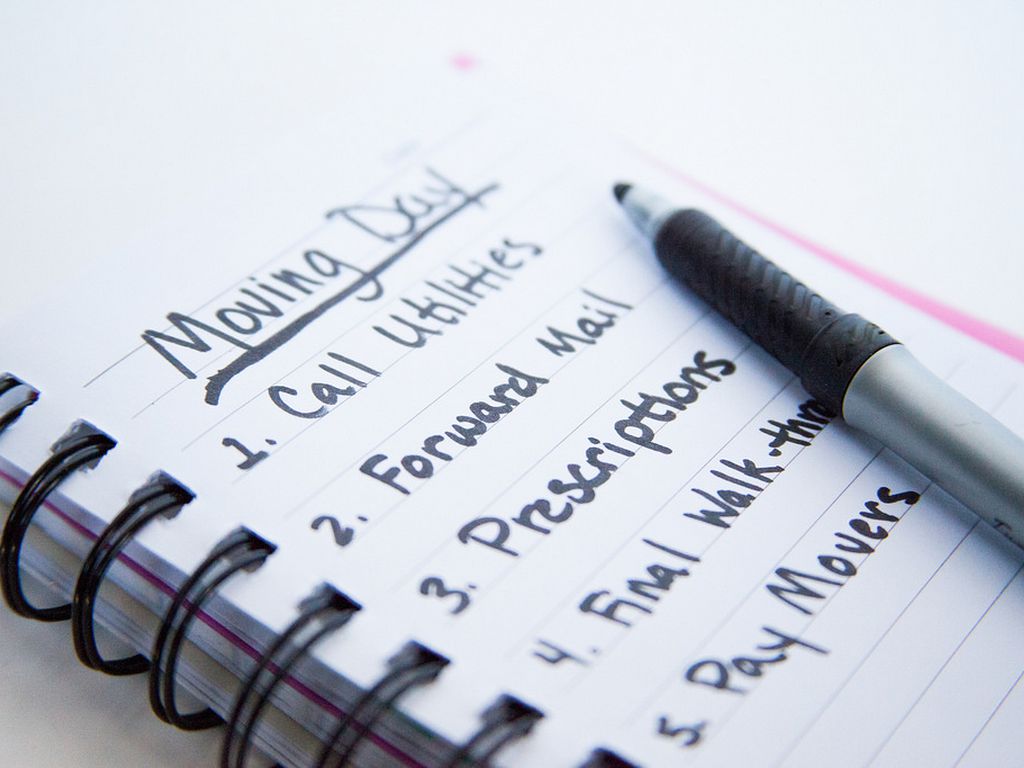 Moving Day
1. Call Utilities
2. Forward Mail
3. Prescriptions
4. Final Walk-thr
5. Pay Movers